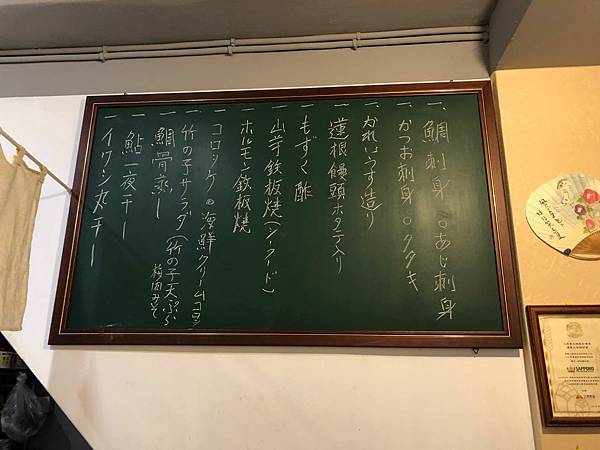 一、鯛刺身 ○あじ刺身
一、かつお刺身 ○タタキ
一、かれいうす造り
一 蓮根饅頭ホタテ入り
一 もずく酢
一 山芋鉄板焼(シーフード)
一 ホルモン鉄板焼
一 コロッケの海鮮クリームコロッケ
一 竹の子サラダ(竹の子天ぷら
梅肉みそ
一 鯛骨蒸し
一 鮎一夜干し
一 イワシ丸干し
SAPPORO